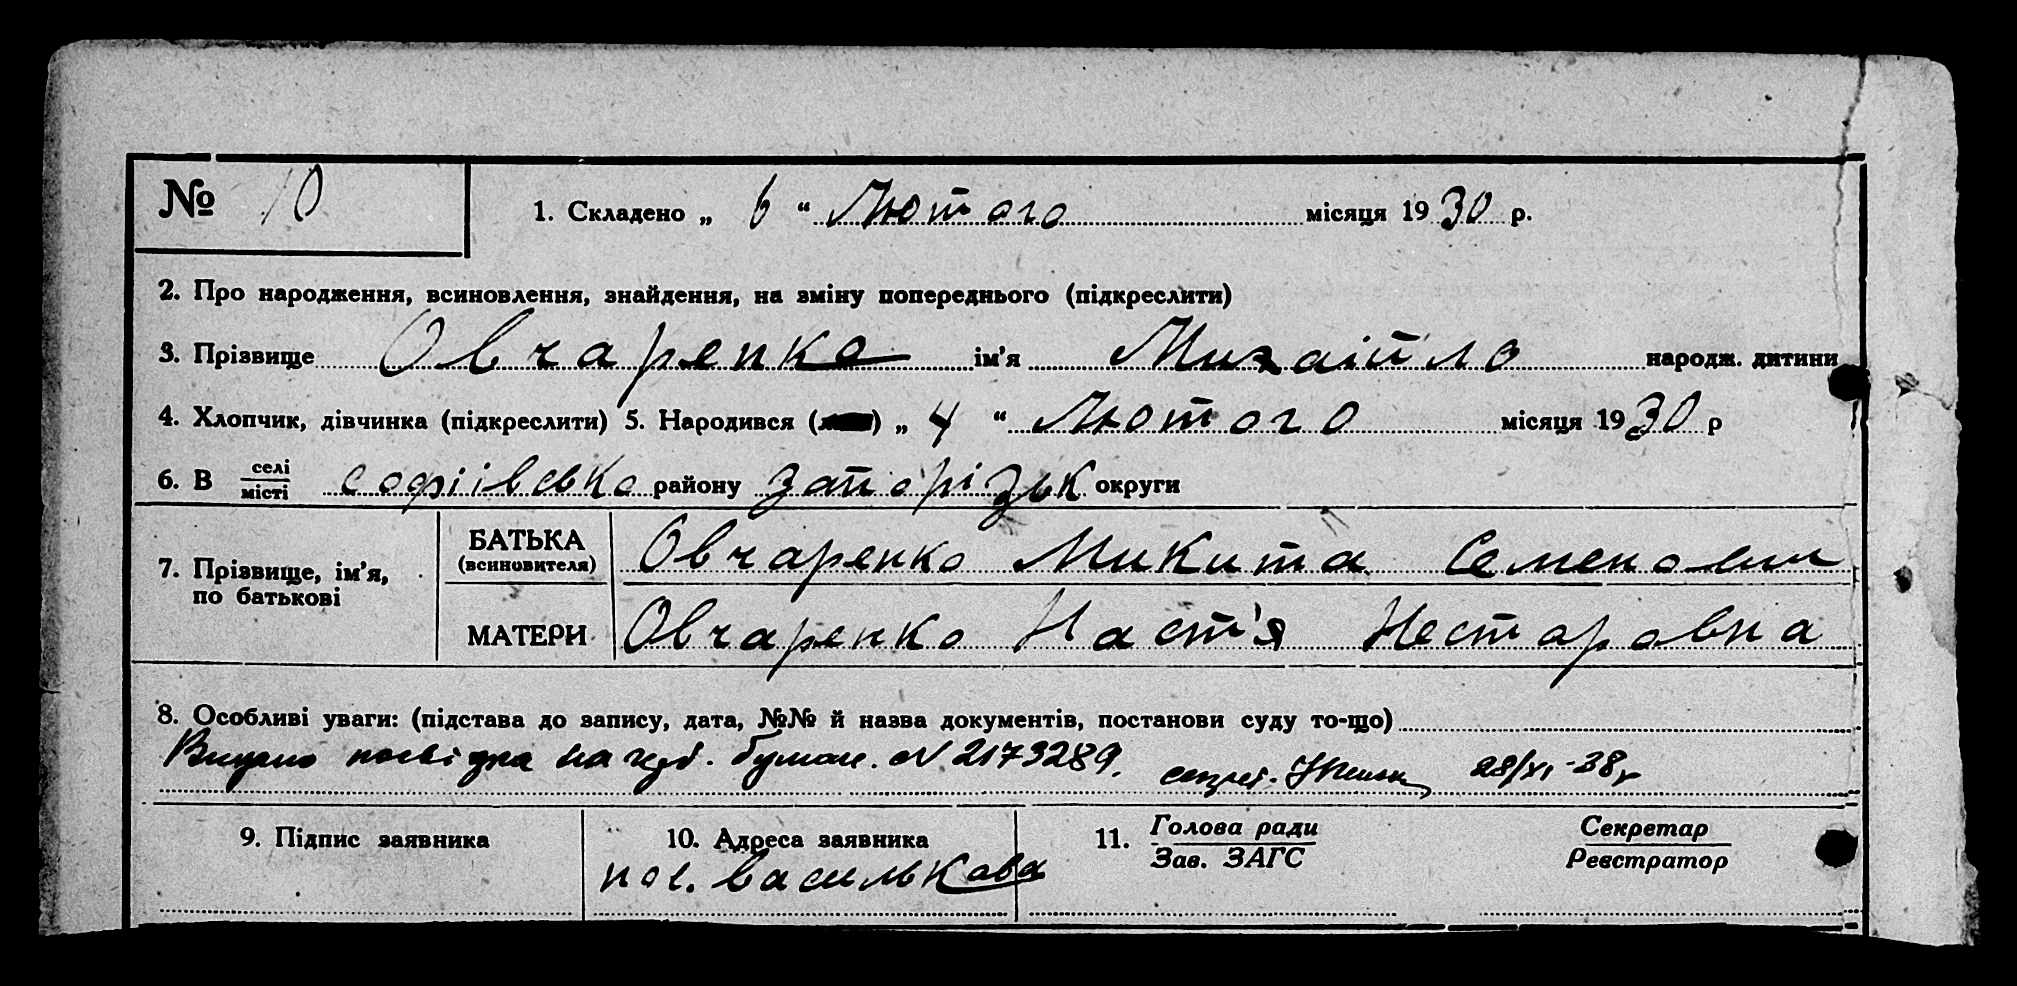 № 10 1. Складено „ 6 “ Лютого місяця 1930 р.
2. Про народження, всиновлення, знайдення, на зміну попереднього (підкреслити)
3. Прізвище Овчаренко ім’я Михаійло народж. дитини
4. Хлопчик, дівчинка (підкреслити) 5. Народився ( ) „ 4 “ Лютого місяця 1930 р
6. В селі
місті софіівсько району запорізьк округи
7. Прізвище, ім’я,
по батькові
БАТЬКА
(всиновителя) Овчаренко Микита Семенович
МАТЕРИ Овчаренко Наст'я Несторовна
8. Особливі уваги: (підстава до запису, дата, №№ й назва документів, постанови суду то-що)
Видано на герб. бумаге. N 2173289. секрет. 28/XI-38г
9. Підпис заявника 10. Адреса заявника 11. Голова ради Секретар
Зав. ЗАГС Реєстратор
пос. Василькова